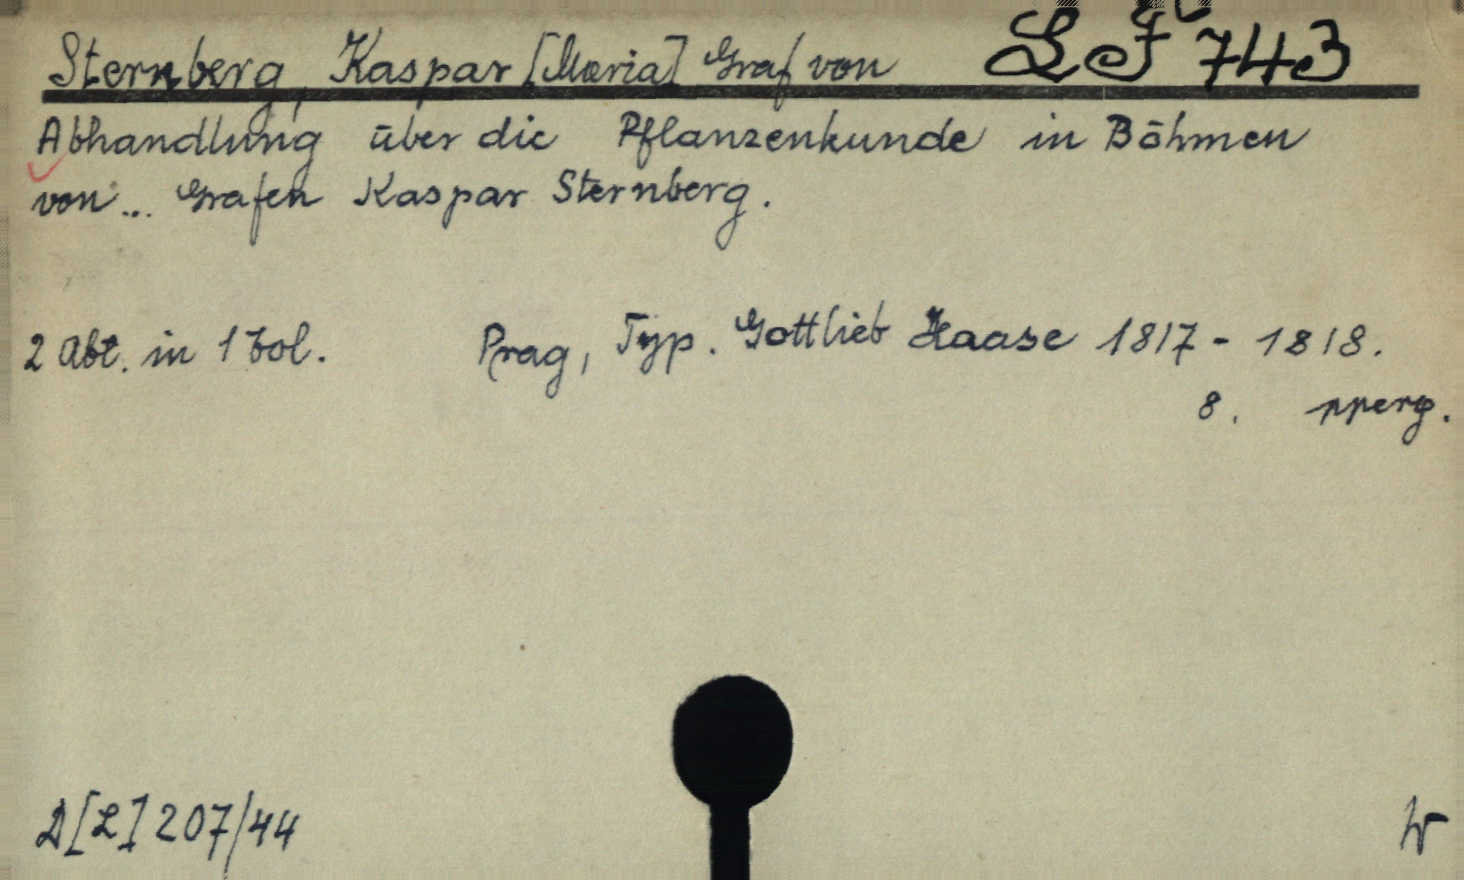 Sternberg, Kaspar [Maria] Graf von LeF 743
Abhandlung über die Pflanzenkunde in Böhmen
von... Grafen Kaspar Sternberg.
2 Abt. in 1 vol. Prag, Typ. Gottlieb Haase 1817 - 1818.
8. pperg.
D[L] 207/44 W